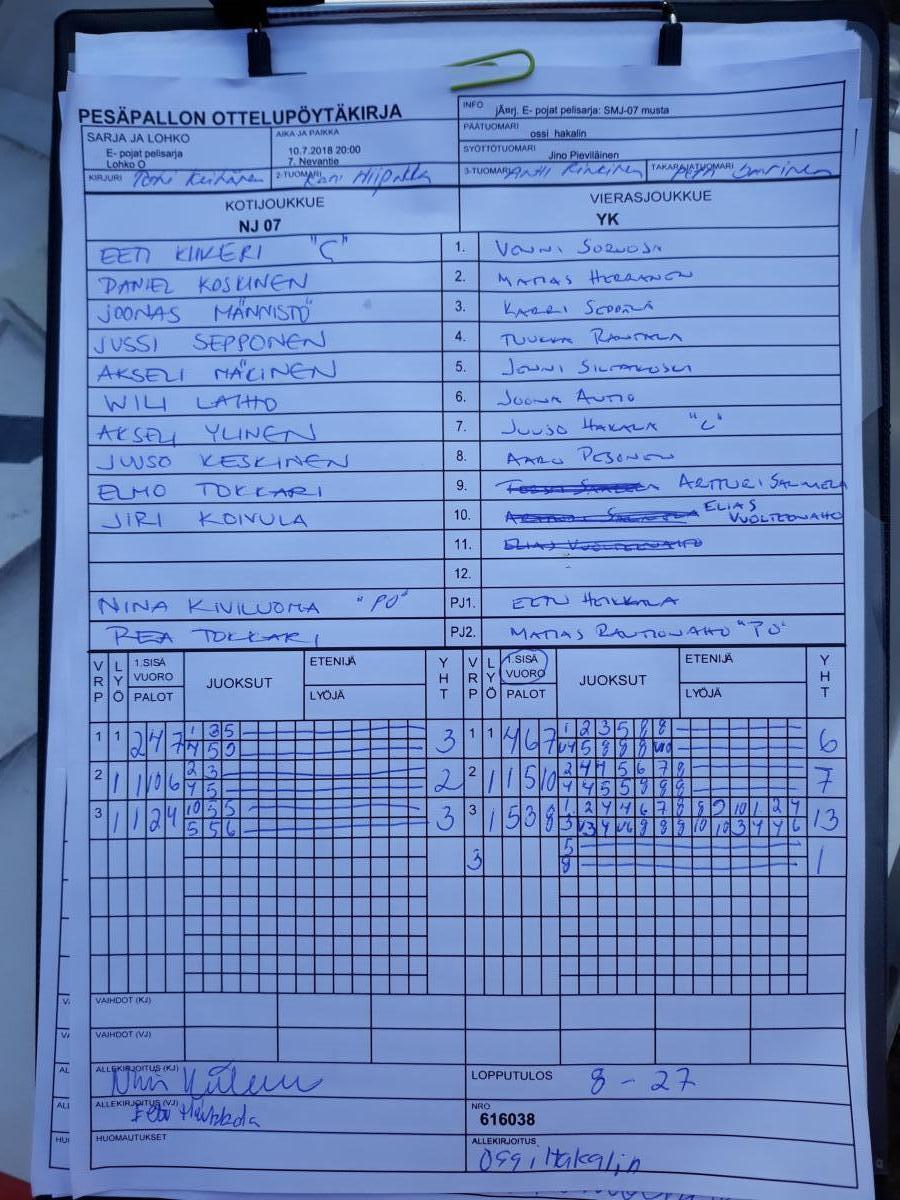 PESÄPALLON OTTELUPÖYTÄKIRJA
INFO jÄ¤rj. E- pojat pelisarja: SMJ-07 musta
SARJA JA LOHKO
E- pojat pelisarja
Lohko O
AIKA JA PAIKKA
10.7.2018 20:00
7. Nevantie
PÄÄTUOMARI ossi hakalin
SYÖTTÖTUOMARI Jino Pieviläinen
KIRJURI
2-TUOMARI
3-TUOMARI Antti
TAKARAJATUOMARI
KOTIJOUKKUE
NJ 07
VIERASJOUKKUE
YK
EETI KIIKERI "C" 1.
DANIEL KOSKINEN 2. MATIAS HERRANEN
JOONAS MÄNNISTÖ 3. KARRI SEPPÄLÄ
JUSSI SEPPONEN 4. TUUKKA RANTALA
AKSELI MÄKINEN 5. JONNI SILTAKOSKI
WILI LAIHO 6. JOONA AUTIO
AKSELI YLINEN 7. JUUSO HAKALA "C"
JUUSO KESKINEN 8. AARO PESONEN
ELMO TOKKARI 9. ARTTURI SALMELA
JIRI KOIVULA 10. ELIAS VUOLTEENAHO
11. ELIAS VUOLTEENAHO
12.
NINA KIVILUOMA "PO" PJ1. EETU HEIKKALA
REA TOKKARI PJ2. MATIAS RAUTIONAHO "PJ"
VRP LYÖ 1.SISÄ VUORO PALOT JUOKSUT ETENIJÄ LYÖJÄ YHT VRP LYÖ 1.SISÄ VUORO PALOT JUOKSUT ETENIJÄ LYÖJÄ YHT
1 1 2 4 7 1 3 5 3 1 1 4 6 7 1 2 3 5 8 8 6
4 5 9
2 1 10 6 2 3 2 2 1 1 5 10 2 4 4 5 6 7 8 7
4 5 4 4 5 5 8 8 8
3 1 1 2 4 10 3 5 3 3 1 5 3 8 1 2 4 4 6 7 8 8 9 10 1 2 4 13
5 5 6
3 5 1
8
VAIHDOT (KJ)
VAIHDOT (VJ)
ALLEKIRJOITUS (KJ)
LOPPUTULOS 8 - 27
ALLEKIRJOITUS (VJ) Eetu Heikkala
NRO
616038
HUOMAUTUKSET
ALLEKIRJOITUS Ossi Hakalin